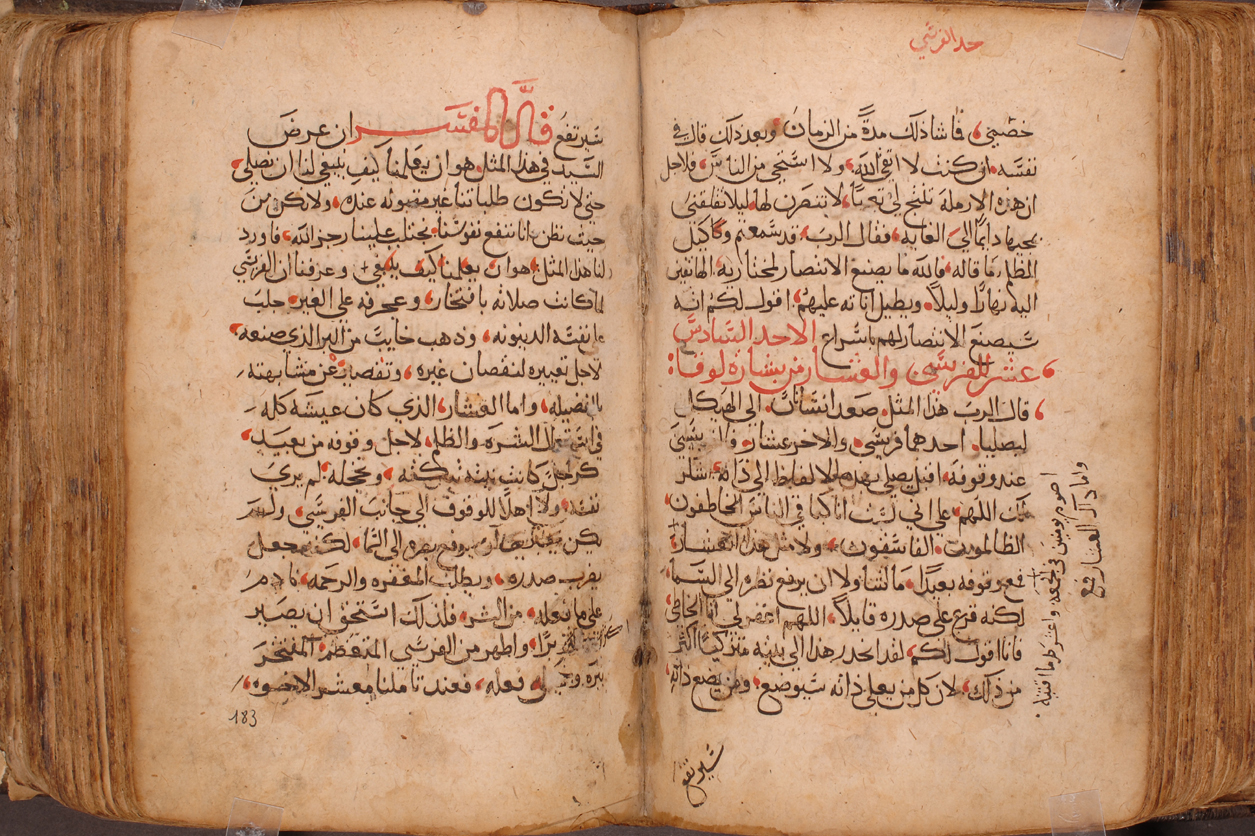 حد الفرشي
خصمي، فاشا ذلك مدة من الزمان، وبعد ذلك قال في
نفسه، ان كنت لا اتقي الله، ولا استحي من الناس، فلاجل
ان هذه الارملة تلج لي تعبًا، لانتصرن لها، ليلا تقلقني
بمجيها دايمًا الي الغايه، فقال الرب، قد سمعتم وكاكيل
الظلم ما قاله، فالله ما يصنع الانتصار لمختاريه، الهاتفين
اليه نهارًا وليلاً، ويطيل اناته عليهم، اقول لكم انه
سيصنع الانتصار لهم باسراع الاحد السادس
عشر للفريسي والعشار من بشارة لوقا:
قال الرب هذا المثل، صعد انسانان، الي الهيكل
ليصليا، احدهما فريسي، والاخر عشار، والفريسي
عند وقوفه، اقبل يصلي بهذه الالفاظ الي ذاته، اشكر
منك اللهم، علي اني لست انا كباقي الناس الخاطفون،
الظالمون، الفاسقون، ولا مثل هذا العشار،
فمع وقوفه بعيدًا، ما اشا ولا ان يرفع نظره الي السما،
لكنه قرع علي صدره قايلاً، اللهم اغفر لي انا الخاطي،
فانا اقول لكم، لقد انحدر هذا الي بيته متزكيًا اكثر
من ذلك، لان كل من يعلي ذاته سيوضع، ومن يضع ذاته،
سيرتفع
اصوم يومين في الجمعه واعشر كل ما اقتنيه.
واما ذاك العشار فمع
سيرتفع قال المفسر ان غرض
السيد في هذا المثل، هو ان يعلمنا كيف ينبغي لنا ان نصلي،
حتي لا تكون طلباتنا غير مقبوله عنده، ولا نكن من
حيث نظن اننا ننفع نفوسنا، نجتلب علينا رجز الله، فاورد
لنا هذا المثل، هو ان يعلمنا كيف ينبغي، وعرفنا ان الفريسي
لما كانت صلاته بافتخار، وعجرفه علي الغير، جلب
علي نفسه الدينونه، وذهب خايبًا من البر الذي صنعه،
لاجل تعييره لنقصان غيره، وتقصيت عن مشابهته،
بالفضيله، واما العشار، الذي كان عيشه كله
في استعمال الشره والظلم، لاجل وقوفه من بعيد،
كرجل كانت نيته تبكته، وتخجله، لم يري
نفسه ولا اهلاً للوقوف الي جانب الفريسي، وليس
يكن يستجري ان يرفع بصره الي السما، لكنه جعل
يضرب صدره، ويطلب المغفره والرحمه، نادم
علي ما فعله، من الشر، فلذلك استحق ان يصير
اكثر برًا، واطهر من الفريسي المتعظم، المفتخر
ببره وجميل فعله، فعند تاملنا يا معشر الاخوه،
183